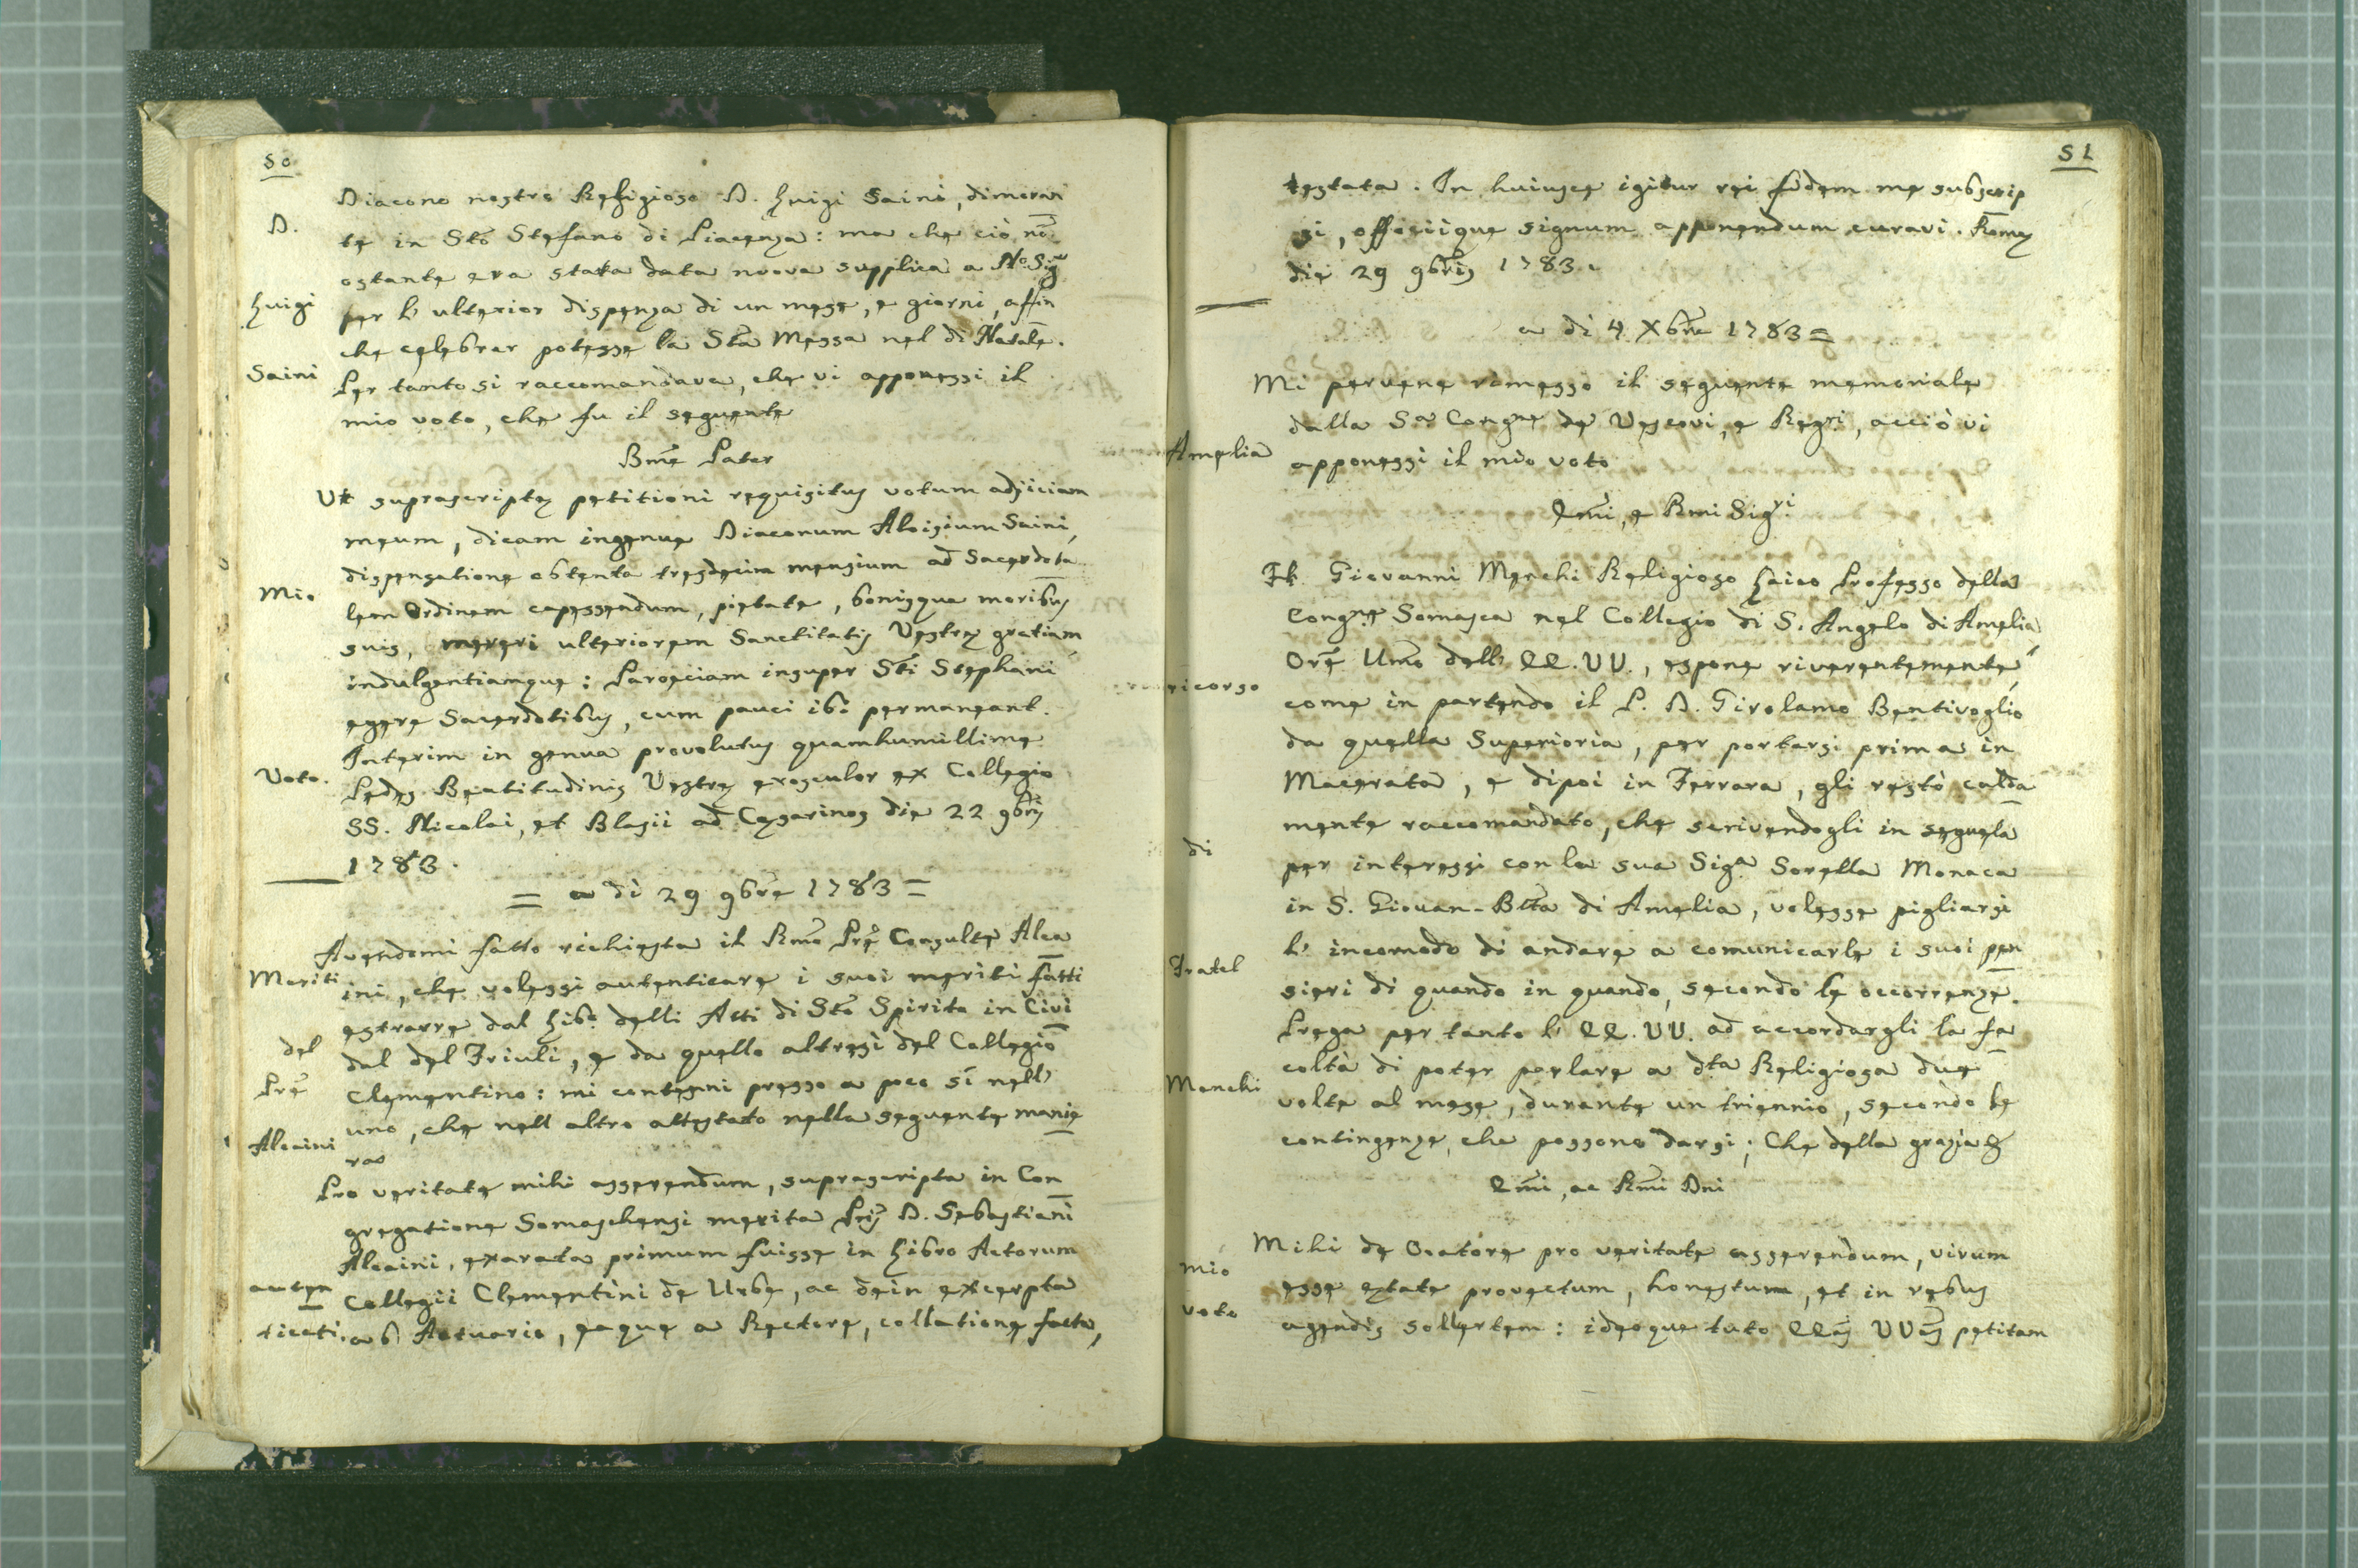 50
Diacono nostro Religioso D. Luigi Saini, dimoran
D.
te in Sto Stefano di Piacenza: ma che ciò nō
ostante era stata data nuova supplica a No. Sigre
Luigi
per l' ulterior dispenza di un mese, e giorni, affin
che celebrar potesse la Sta Messa nel dì Natale.
Saini
Per tanto si raccomandava, che vi apponessi il
mio voto, che fu il seguente
Bme Pater
Ut suprascriptę petitioni requisitus votum adjiciam
meum, dicam ingenue Diaconum Aloisium Saini,
dispensatione obtenta tresdecim mensium ad Sacerdota
Mio
lem Ordinem capessendum, pietate, bonisque moribus
suis, mereri ulteriorem Sanctitatis Vestrę gratiam,
indulgentiamque: Paroeciam insuper Sti Stephani
egere Sacerdotibus, cum pauci ibi permaneant.
Interim in genua provolutus quamhumillime
Voto.
Pedes Beatitudinis Vestrę exosculor ex Collegio
SS. Nicolai, et Blasii ad Cęsarinos die 22 9bris
1783.
= a dì 29 9bre 1783 =
Avendomi fatto richiesta il Rmo Pre Consultre Alca
Meriti
ini, che volessi autenticare i suoi meriti fatti
estrarre dal Libo delli Atti di Sto Spirito in Civi
del
dal del Friuli, e da quello altresì del Collegio
Pre
Clementino: mi contenni presso a poco sì nell'
uno, che nell altro attestato nella seguente manie
Alcaini
ra
Pro veritate mihi asserendum, suprascripta in Con
gregatione Somaschensi merita Pris D. Sebastiani
Alcaini, exarata primum fuisse in Libro Actorum
auten
Collegii Clementini de Urbe, ac dein excerpta
ticati.
ab Actuario, eaque a Rectore, collatione facta,
51
testata. In huiusce igitur rei fidem me subscrip
si, officiique signum apponendum curavi. Romę
die 29 9bris 1783.
a dì 4 Xbre 1783 =
Mi pervene rimesso il seguente memoriale
dalla Sa Congne de Vescovi, e Regri, acciò vi
Amelia
apponessi il mio voto
Emi, e Rmi Sigri
Fr. Giovanni Menchi Religioso Laico Professo della
Congne Somasca nel Collegio di S. Angelo di Amelia
Ore Umo dell' EE.VV., espone riverentemente,
ricorso
come in partendo il P. D. Girolamo Bentivoglio
da quella Superioria, per portarsi prima in
Macerata, e dipoi in Ferrara, gli restò calda
mente raccomandato, che scrivendogli in seguela
di
per interessi con la sua Siga Sorella Monaca
in S. Giovan-Bta di Amelia, volesse pigliarsi
l' incomodo di andare a comunicarle i suoi pen
Fratel
sieri di quando in quando, secondo le occorrenze.
Prega per tanto l' EE.VV. ad accordargli la fa
coltà di poter parlare a dta Religiosa due
Menchi
volte al mese, durante un triennio, secondo le
contingenze, che possono darsi; Che della grazia &
Emi, ac Rmi Dni
Mihi de Oratore pro veritate asserendum, virum
mio
esse ętate provectum, honestum, et in rebus
voto
agendis sollertem: ideoque tuto EEas VVas petitam